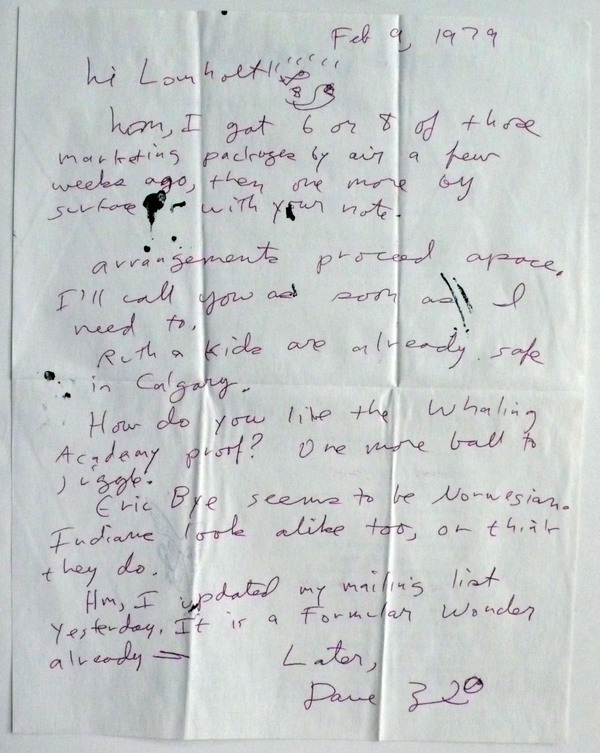 Feb 9, 1979
hi Lomholt!!
hom, I got 6 or 8 of those
marketing packages by air a few
weeks ago, then one more by
surface with your note.
arrangements proceed apace.
I'll call you as soon as I
need to.
Ruth & Kids are already safe
in Calgary.
How do you like the Whaling
Academy proof? One more ball to
juggle.
Eric Bye seems to be Norwegian.
Indians look alike too, or think
they do.
Hm, I updated my mailing list
yesterday. It is a Formular Wonder
already —
Later,
Dave